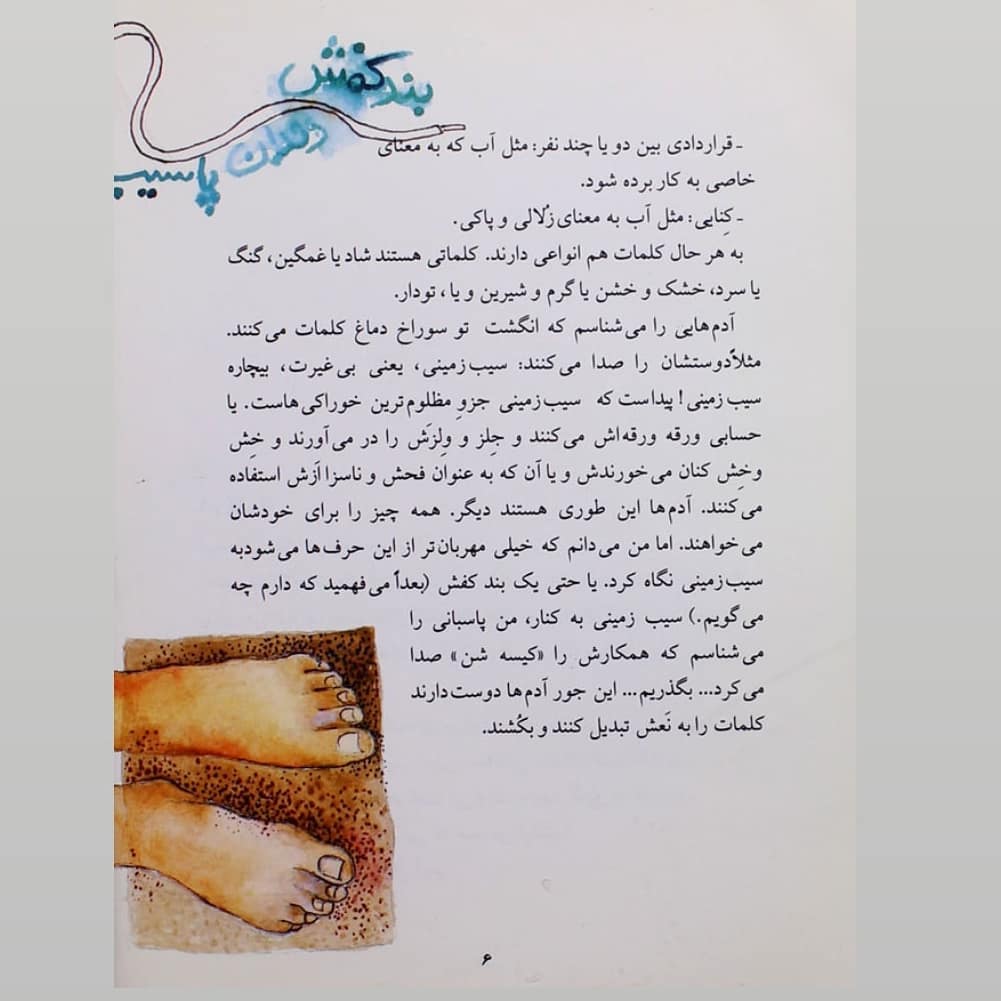 بند کفش
دندان
پاسیب
- قراردادی بین دو یا چند نفر: مثل آب که به معنای
خاصی به کار برده شود.
- کِنایی: مثل آب به معنای زُلالی و پاکی.
به هر حال کلمات هم انواعی دارند. کلماتی هستند شاد یا غمگین، گنگ
یا سرد، خشک و خشن یا گرم و شیرین و یا، تودار.
آدم‌هایی را می‌شناسم که انگشت تو سوراخ دماغ کلمات می‌کنند.
مثلاً دوستشان را صدا می‌کنند: سیب‌زمینی، یعنی بی‌غیرت، بیچاره
سیب‌زمینی! پیداست که سیب‌زمینی جزوِ مظلوم‌ترین خوراکی‌هاست. یا
حسابی ورقه ورقه‌اش می‌کنند و جِلِز و ولِزَش را در می‌آورند و خِش
وخِش کنان می‌خورندش و یا آن که به عنوان فحش و ناسزا اَزَش استفاده
می‌کنند. آدم‌ها این طوری هستند دیگر. همه چیز را برای خودشان
می‌خواهند. اما من می‌دانم که خیلی مهربان‌تر از این حرف‌ها می‌شود به
سیب‌زمینی نگاه کرد. یا حتی یک بند کفش (بعداً می‌فهمید که دارم چه
می‌گویم.) سیب زمینی به کنار، من پاسبانی را
می‌شناسم که همکارش را «کیسه شن» صدا
می‌کرد... بگذریم... این جور آدم‌ها دوست دارند
کلمات را به نَعش تبدیل کنند و بکُشند.
۶